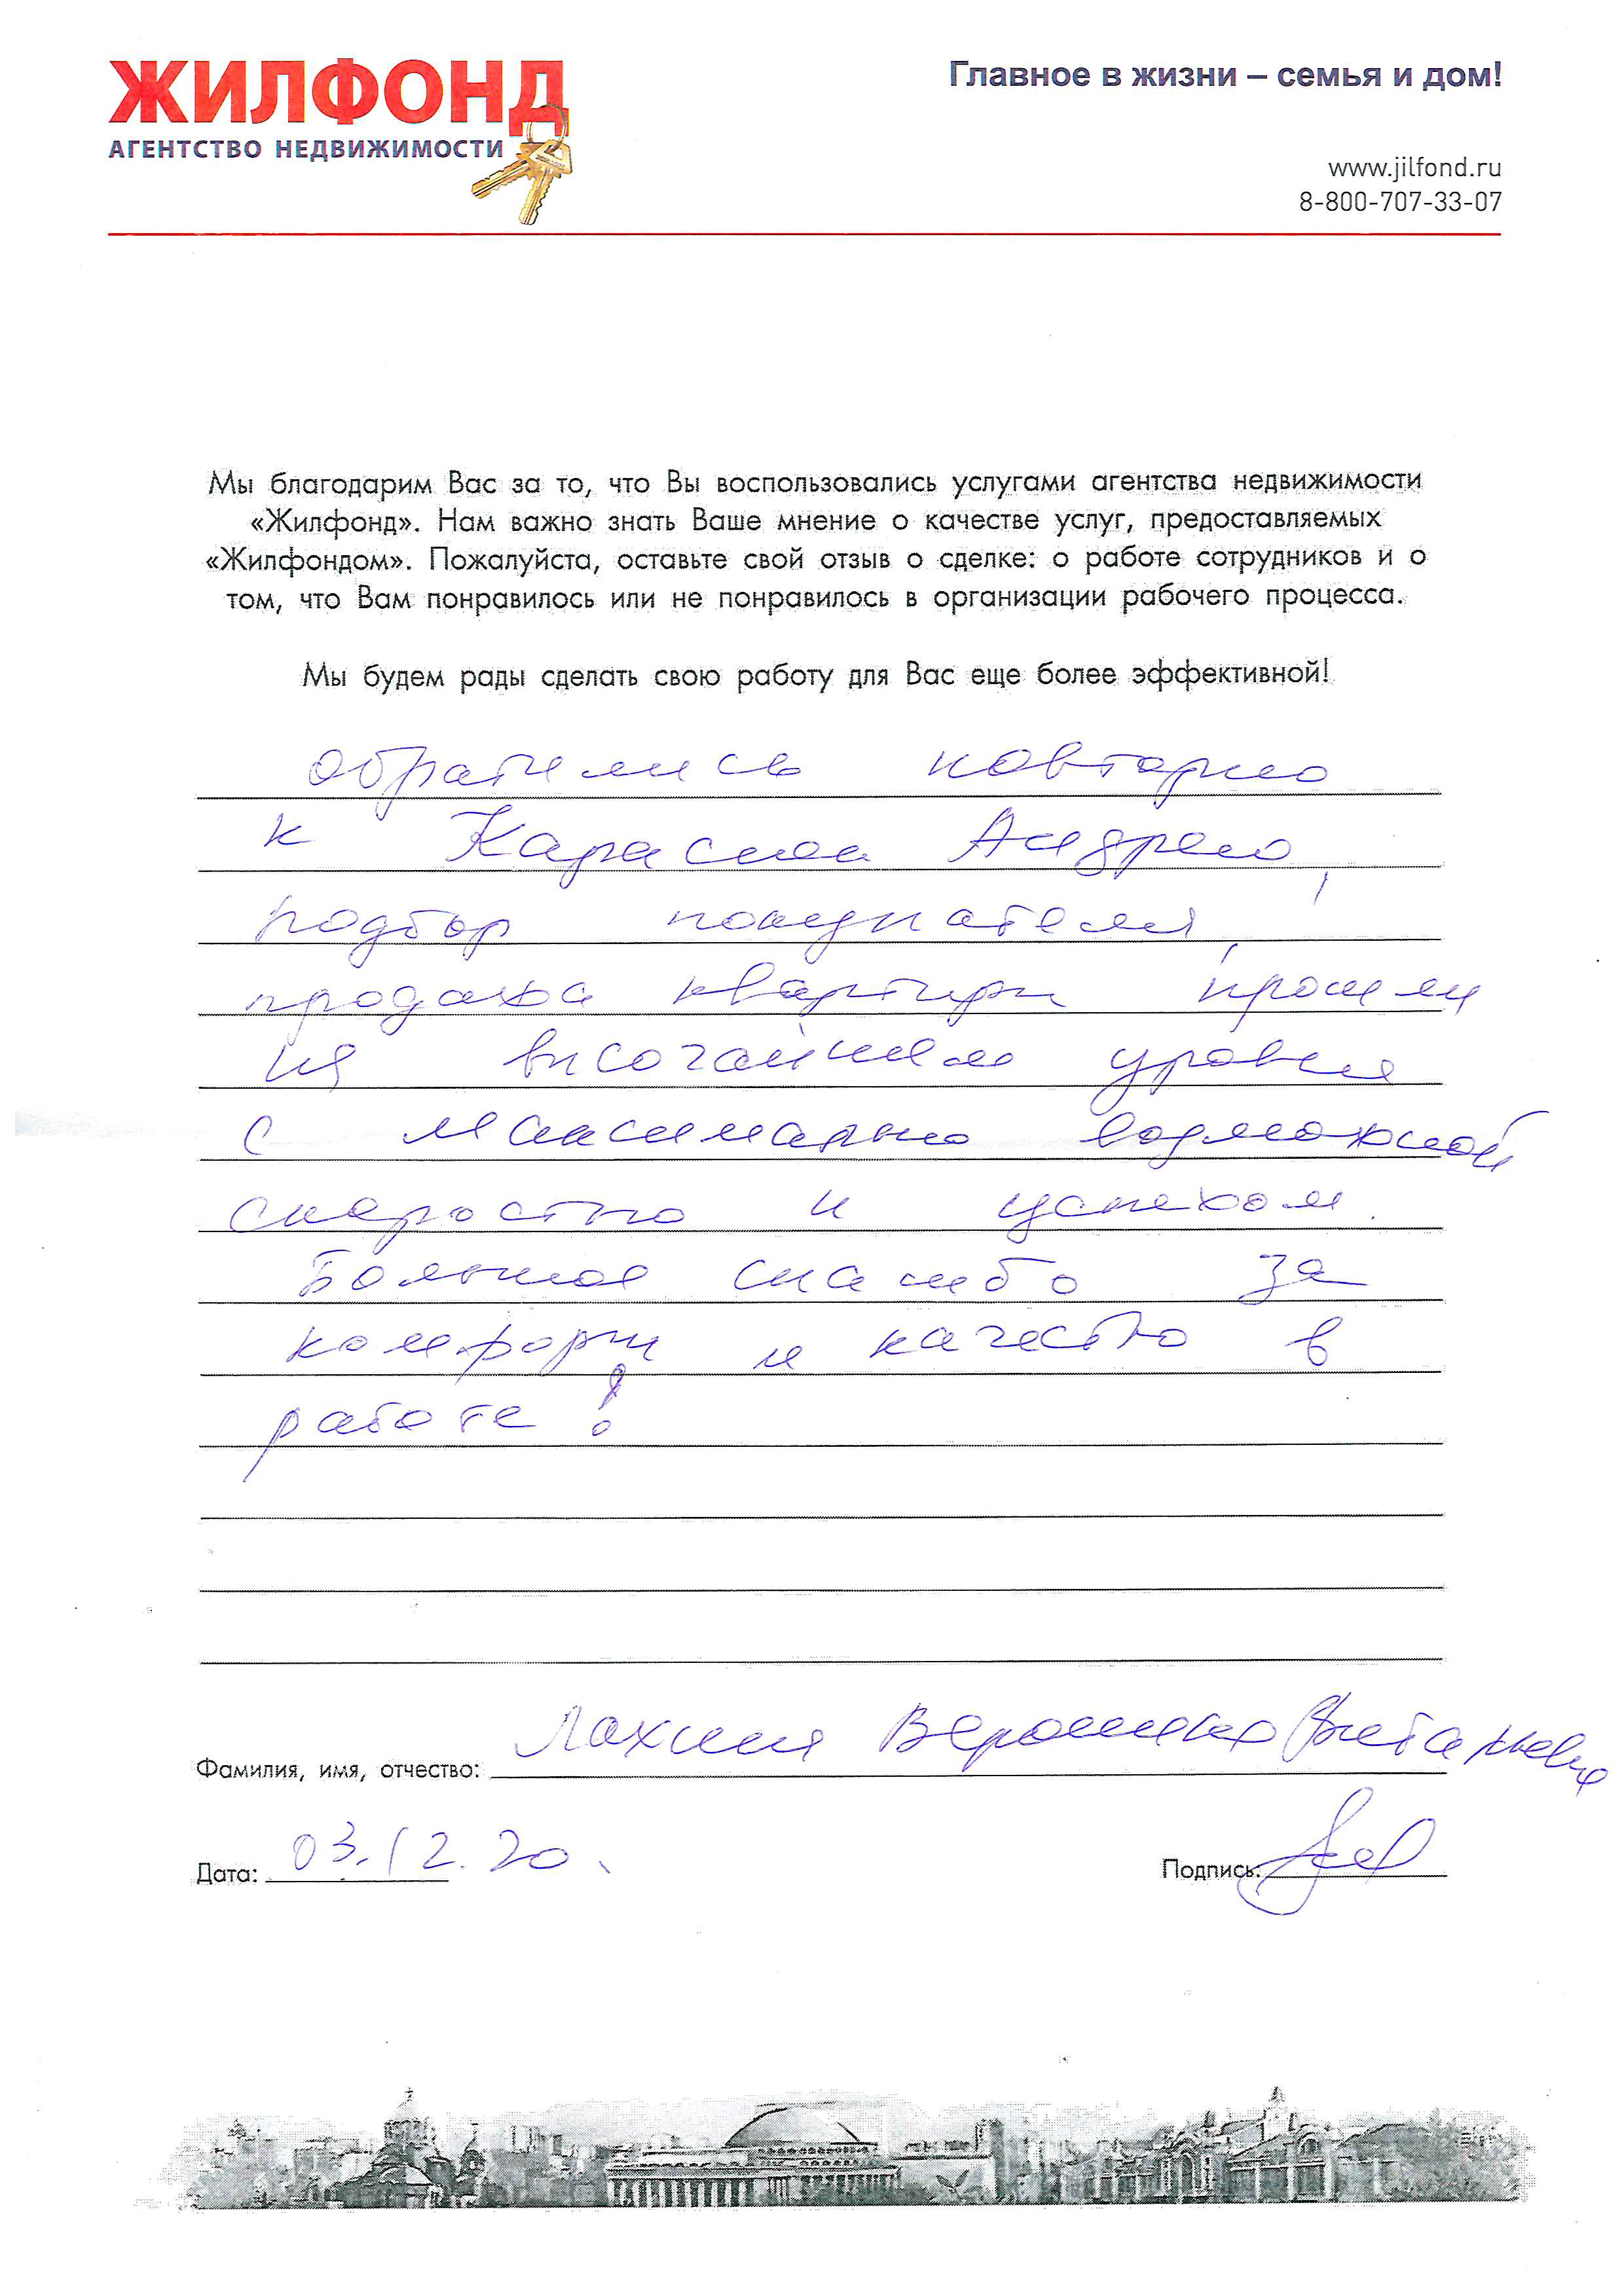 ЖИЛФОНД
АГЕНТСТВО НЕДВИЖИМОСТИ
Главное в жизни – семья и дом!
www.jilfond.ru
8-800-707-33-07
Мы благодарим Вас за то, что Вы воспользовались услугами агентства недвижимости
«Жилфонд». Нам важно знать Ваше мнение о качестве услуг, предоставляемых
«Жилфондом». Пожалуйста, оставьте свой отзыв о сделке: о работе сотрудников и о
том, что Вам понравилось или не понравилось в организации рабочего процесса.
Мы будем рады сделать свою работу для Вас еще более эффективной!
Обратились повторно
к Андрею,
подбор покупателя,
продажа квартиры прошли
на высочайшем уровне
с максимально возможной
скоростью и успехом.
Большое спасибо за
комфорт и качество в
работе!
Фамилия, имя, отчество: Вероника Витальевна
Дата: 03.12.20.
Подпись: